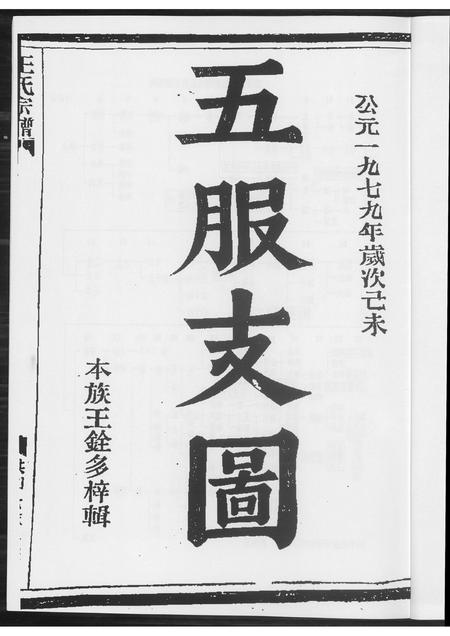 公元一九七九年歲次己未
五服支圖
本族王銓多梓輯
王氏宗譜